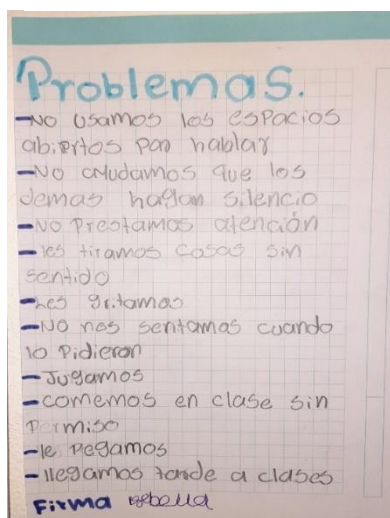 Problemas.
-No usamos los espacios
abiertos por hablar
-No ayudamos que los
demas hagan silencio
-No Prestamos atención
-les tiramos cosas sin
sentido
-Les gritamos
-No nos sentamos cuando
lo Pidieron
-Jugamos
-comemos en clase sin
Permiso
-le Pegamos
-llegamos tarde a clases
Firma